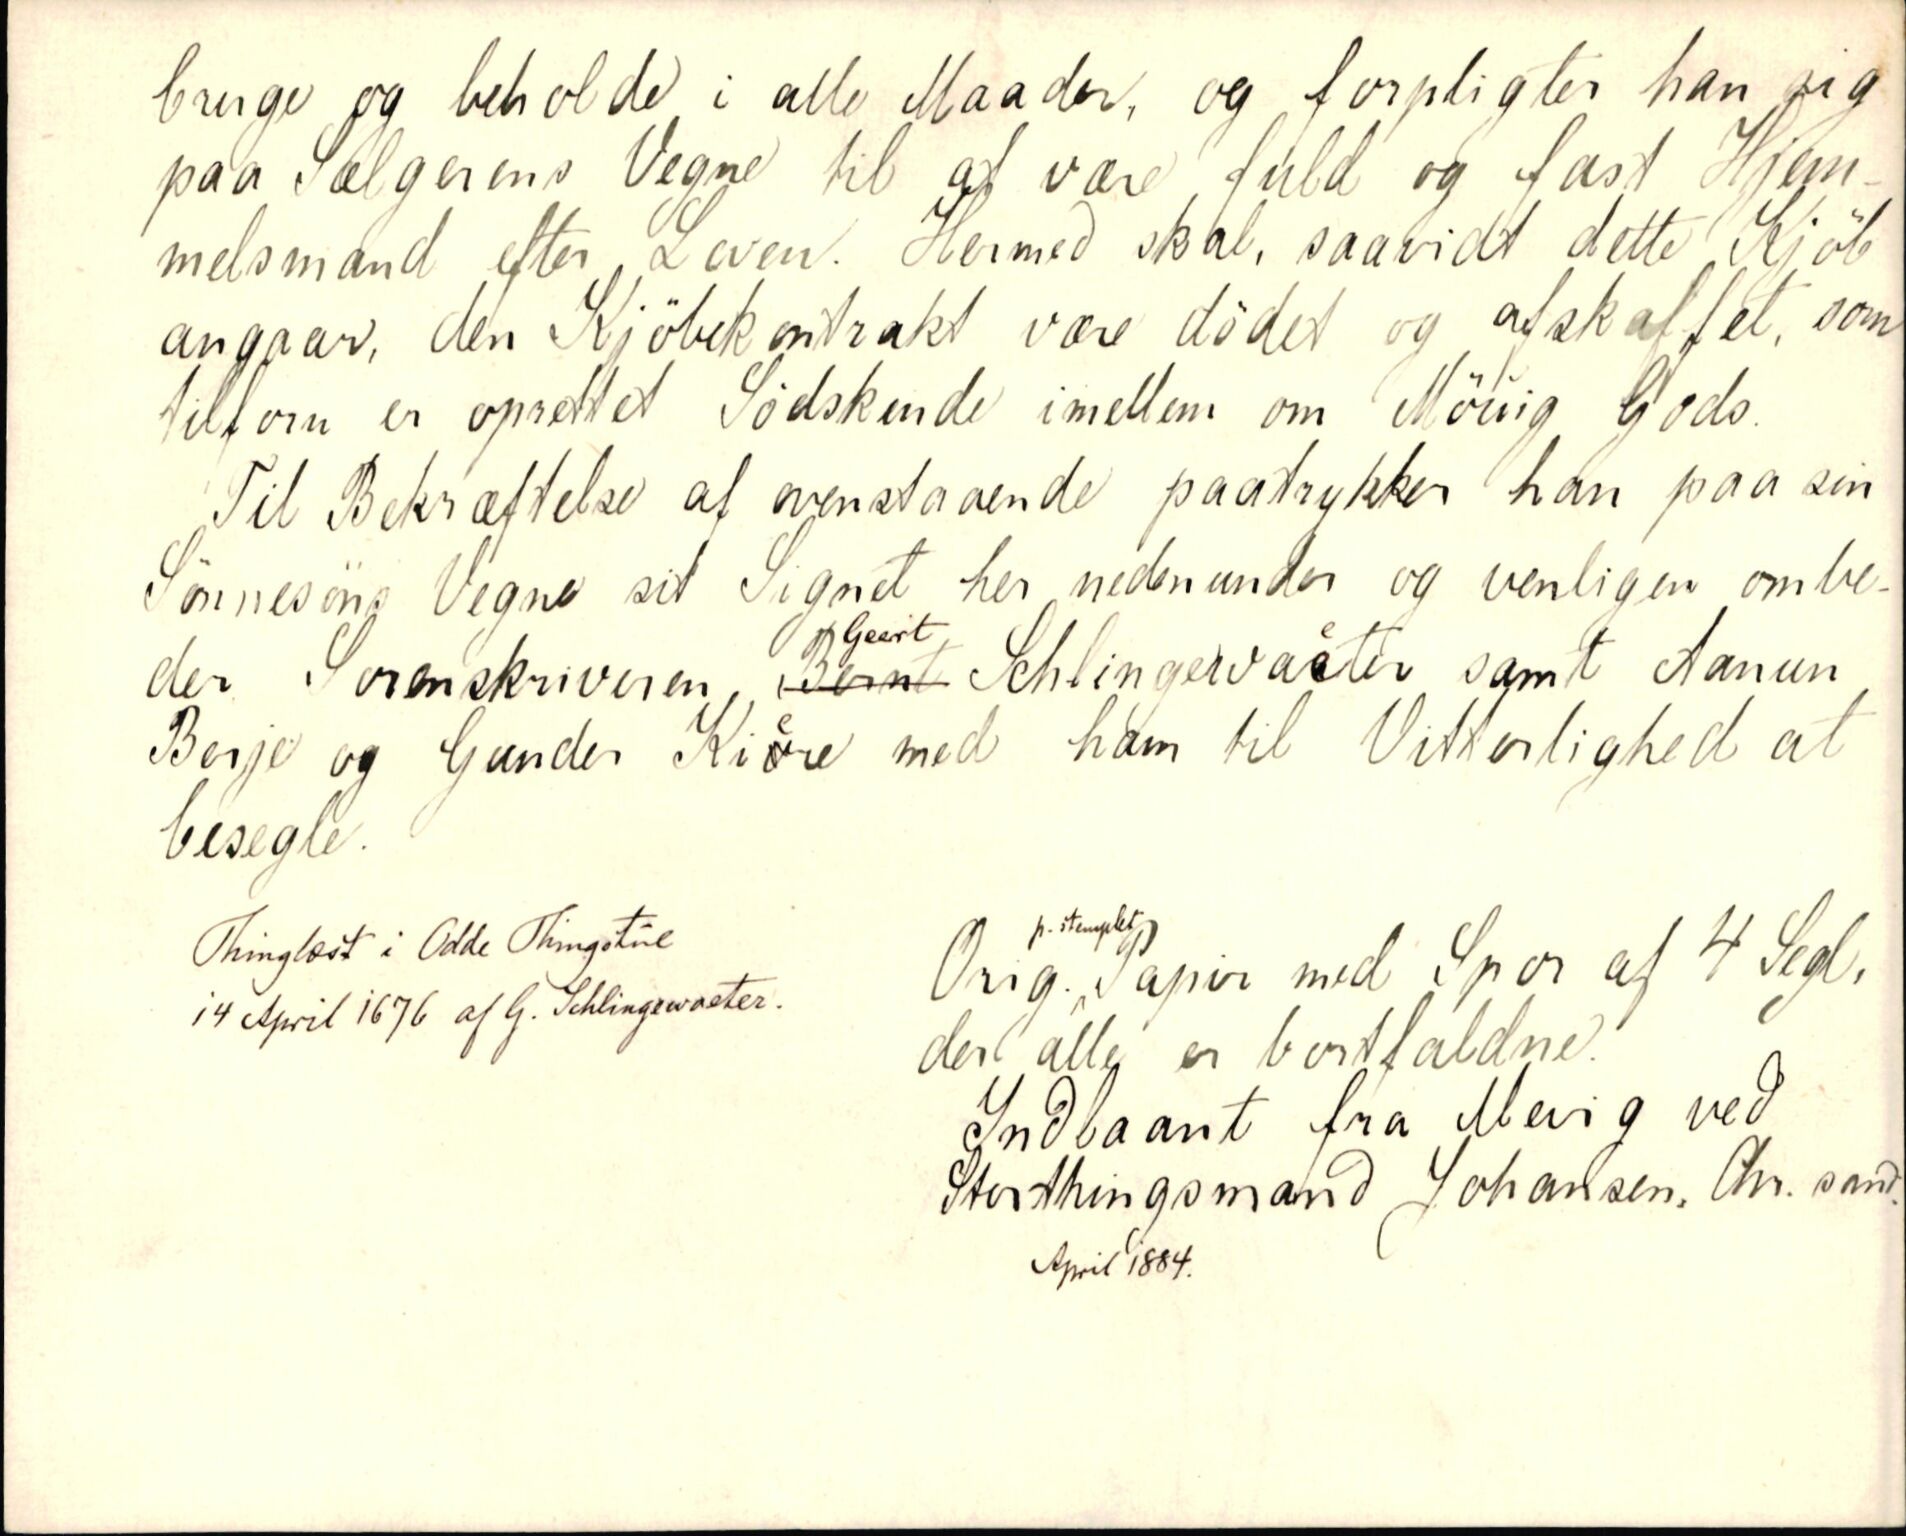 bruge og beholde i alle Maader, og forpligter han sig
paa Sælgerens Vegne til at være fuld og fast Hjem-
melsmand efter Loven. Hermed skal, saavidt dette Kjöb
angaar, den Kjöbekontrakt være dödet og afskaffet, som
tilforn er oprettet Södskende imellem om Möuig Gods.
Til Bekræftelse af ovenstaaende paatrykker han paa sin
Sönnesöns Vegne sit Signet her nedenunder og venligen ombe-
der Sorenskriveren, Bernt Geert Schlingervaeter samt Aanun
Berje og Gunder Kiere med ham til Vitterlighed at
besegle.
Thinglæst i Odde Thingstue
14 April 1676 af G. Schlingewaeter.
Orig. p. stemplet Papir med Spor af 4 Segl,
der alle er bortfaldne.
Indlaant fra Mevig ved
Storthingsmand Johansen, Chr. sand.
April 1884.